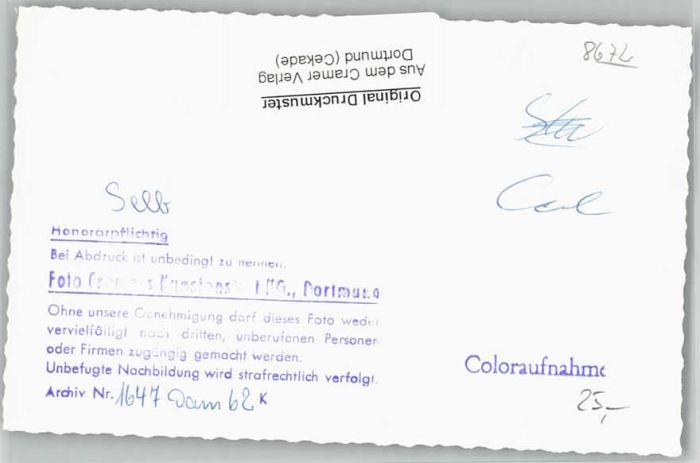 8672
Original Druckmuster
Aus dem Cramer Verlag
Dortmund (Cekade)
Selb
Honorarpflichtig
Bei Abdruck ist unbedingt zu nennen:
Foto Cramers Kunstanstalt KG., Dortmund
Ohne unsere Genehmigung darf dieses Foto weder
vervielfältigt noch dritten, unberufenen Personen
oder Firmen zugängig gemacht werden.
Unbefugte Nachbildung wird strafrechtlich verfolgt.
Archiv Nr. 1647 Dam 62 K
Coloraufnahme
25,-